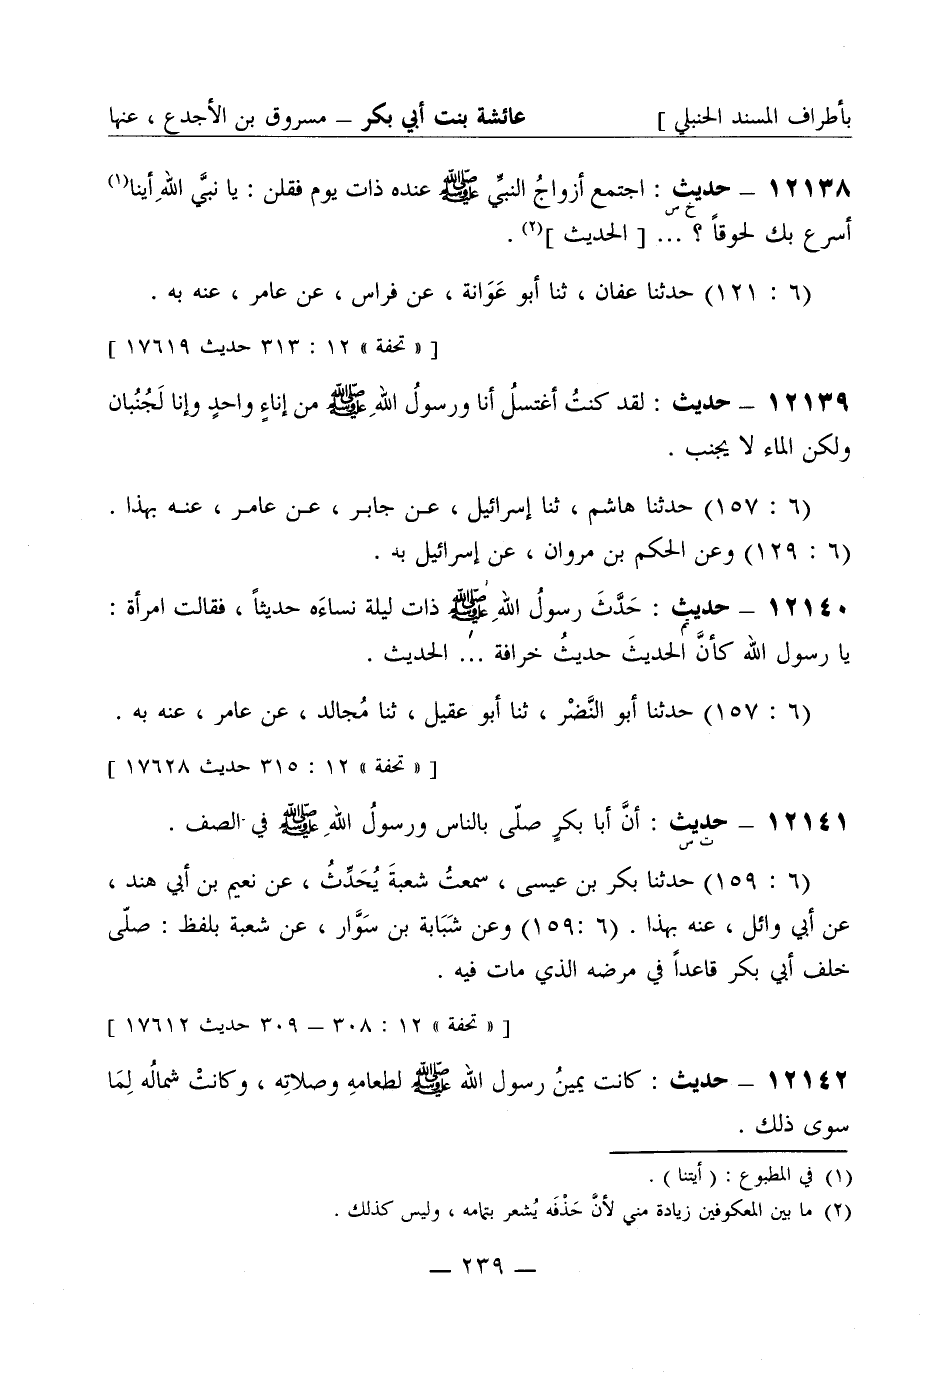 بأطراف المسند الحنبلي ] عائشة بنت أبي بكر – مسروق بن الأجدع ، عنها
١٢١٣٨ – حديث : اجتمع أزواجُ النبيِّ ﷺ عنده ذات يوم فقلن : يا نبيَّ اللهِ أينا(١)
خ س
أسرع بك لحوقاً ؟ ... [ الحديث ](٢) .
(٦ : ١٢١) حدثنا عفان ، ثنا أبو عَوَانة ، عن فراس ، عن عامر ، عنه به .
[ « تحفة » ١٢ : ٣١٣ حديث ١٧٦١٩ ]
١٢١٣٩ – حديث : لقد كنتُ أغتسلُ أنا ورسولُ اللهِ ﷺ من إناءٍ واحدٍ وإنا لَجُنُبان
ولكن الماء لا يجنب .
(٦ : ١٥٧) حدثنا هاشم ، ثنا إسرائيل ، عن جابر ، عن عامر ، عنه بهذا .
(٦ : ١٢٩) وعن الحكم بن مروان ، عن إسرائيل به .
١٢١٤٠ – حديث : حَدَّثَ رسولُ اللهِ ﷺ ذات ليلة نساءَه حديثاً ، فقالت امرأة :
تم
يا رسول الله كأنَّ الحديثَ حديثُ خرافة ... الحديث .
(٦ : ١٥٧) حدثنا أبو النَّضْر ، ثنا أبو عقيل ، ثنا مُجالد ، عن عامر ، عنه به .
[ « تحفة » ١٢ : ٣١٥ حديث ١٧٦٢٨ ]
١٢١٤١ – حديث : أنَّ أبا بكرٍ صلّى بالناس ورسولُ اللهِ ﷺ في الصف .
ت س
(٦ : ١٥٩) حدثنا بكر بن عيسى ، سمعتُ شعبةَ يُحَدِّثُ ، عن نعيم بن أبي هند ،
عن أبي وائل ، عنه بهذا . (٦ :١٥٩) وعن شَبَابة بن سَوَّار ، عن شعبة بلفظ : صلّى
خلف أبي بكر قاعداً في مرضه الذي مات فيه .
[ « تحفة » ١٢ : ٣٠٨ – ٣٠٩ حديث ١٧٦١٢ ]
١٢١٤٢ – حديث : كانت يمينُ رسول الله ﷺ لطعامهِ وصلاتِه ، وكانتْ شمالُه لِمَا
سوى ذلك .
(١) في المطبوع : ( أيتنا ) .
(٢) ما بين المعكوفين زيادة مني لأنَّ حَذْفَه يُشعر بتمامه ، وليس كذلك .
– ٢٣٩ –